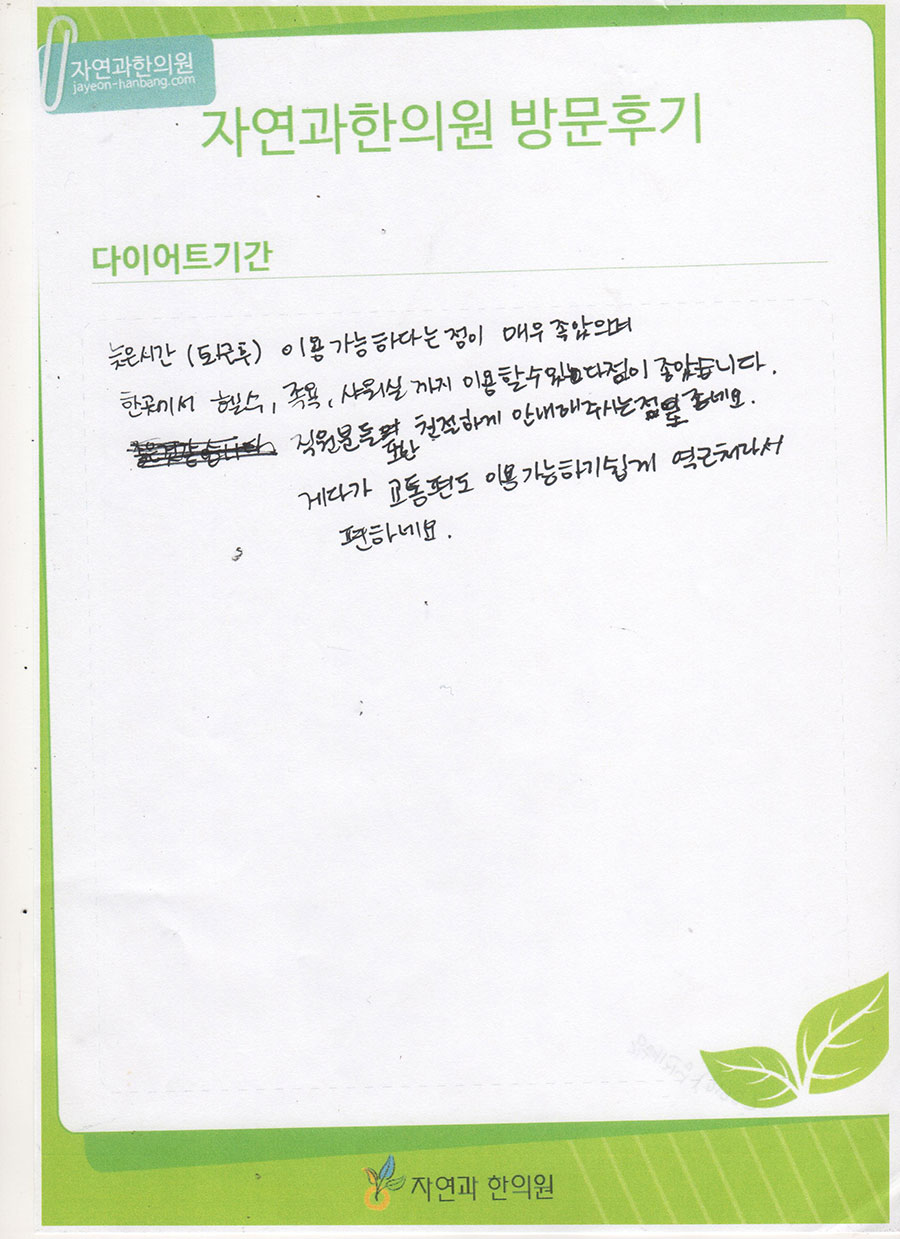 자연과한의원
jayeon-hanbang.com
자연과한의원 방문후기
다이어트기간
늦은시간 (퇴근후) 이용 가능하다는 점이 매우 좋았으며
한곳에서 헬스, 족욕, 샤워실 까지 이용할수있는다점이 좋았습니다.
직원분들 또한 친절하게 안내해주시는점 좋네요.
게다가 교통편도 이용가능하기쉽게 역근처라서
편하네요.
자연과 한의원